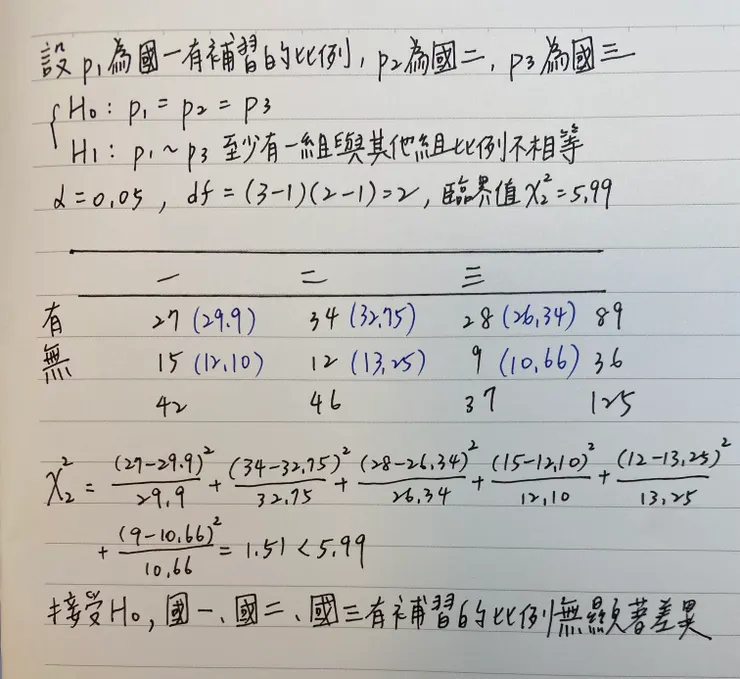 設 p₁為國一有補習的比例, p₂為國二, p₃為國三
{ H₀: p₁ = p₂ = p₃
H₁: p₁ ~ p₃ 至少有一組與其他組比例不相等
α = 0.05, df = (3-1)(2-1) = 2, 臨界值 χ₂² = 5.99
一 二 三
有 27 (29.9) 34 (32.75) 28 (26.34) 89
無 15 (12.10) 12 (13.25) 9 (10.66) 36
42 46 37 125
χ₂² = (27-29.9)²/29.9 + (34-32.75)²/32.75 + (28-26.34)²/26.34 + (15-12.10)²/12.10 + (12-13.25)²/13.25
+ (9-10.66)²/10.66 = 1.51 < 5.99
接受H₀, 國一、國二、國三有補習的比例無顯著差異